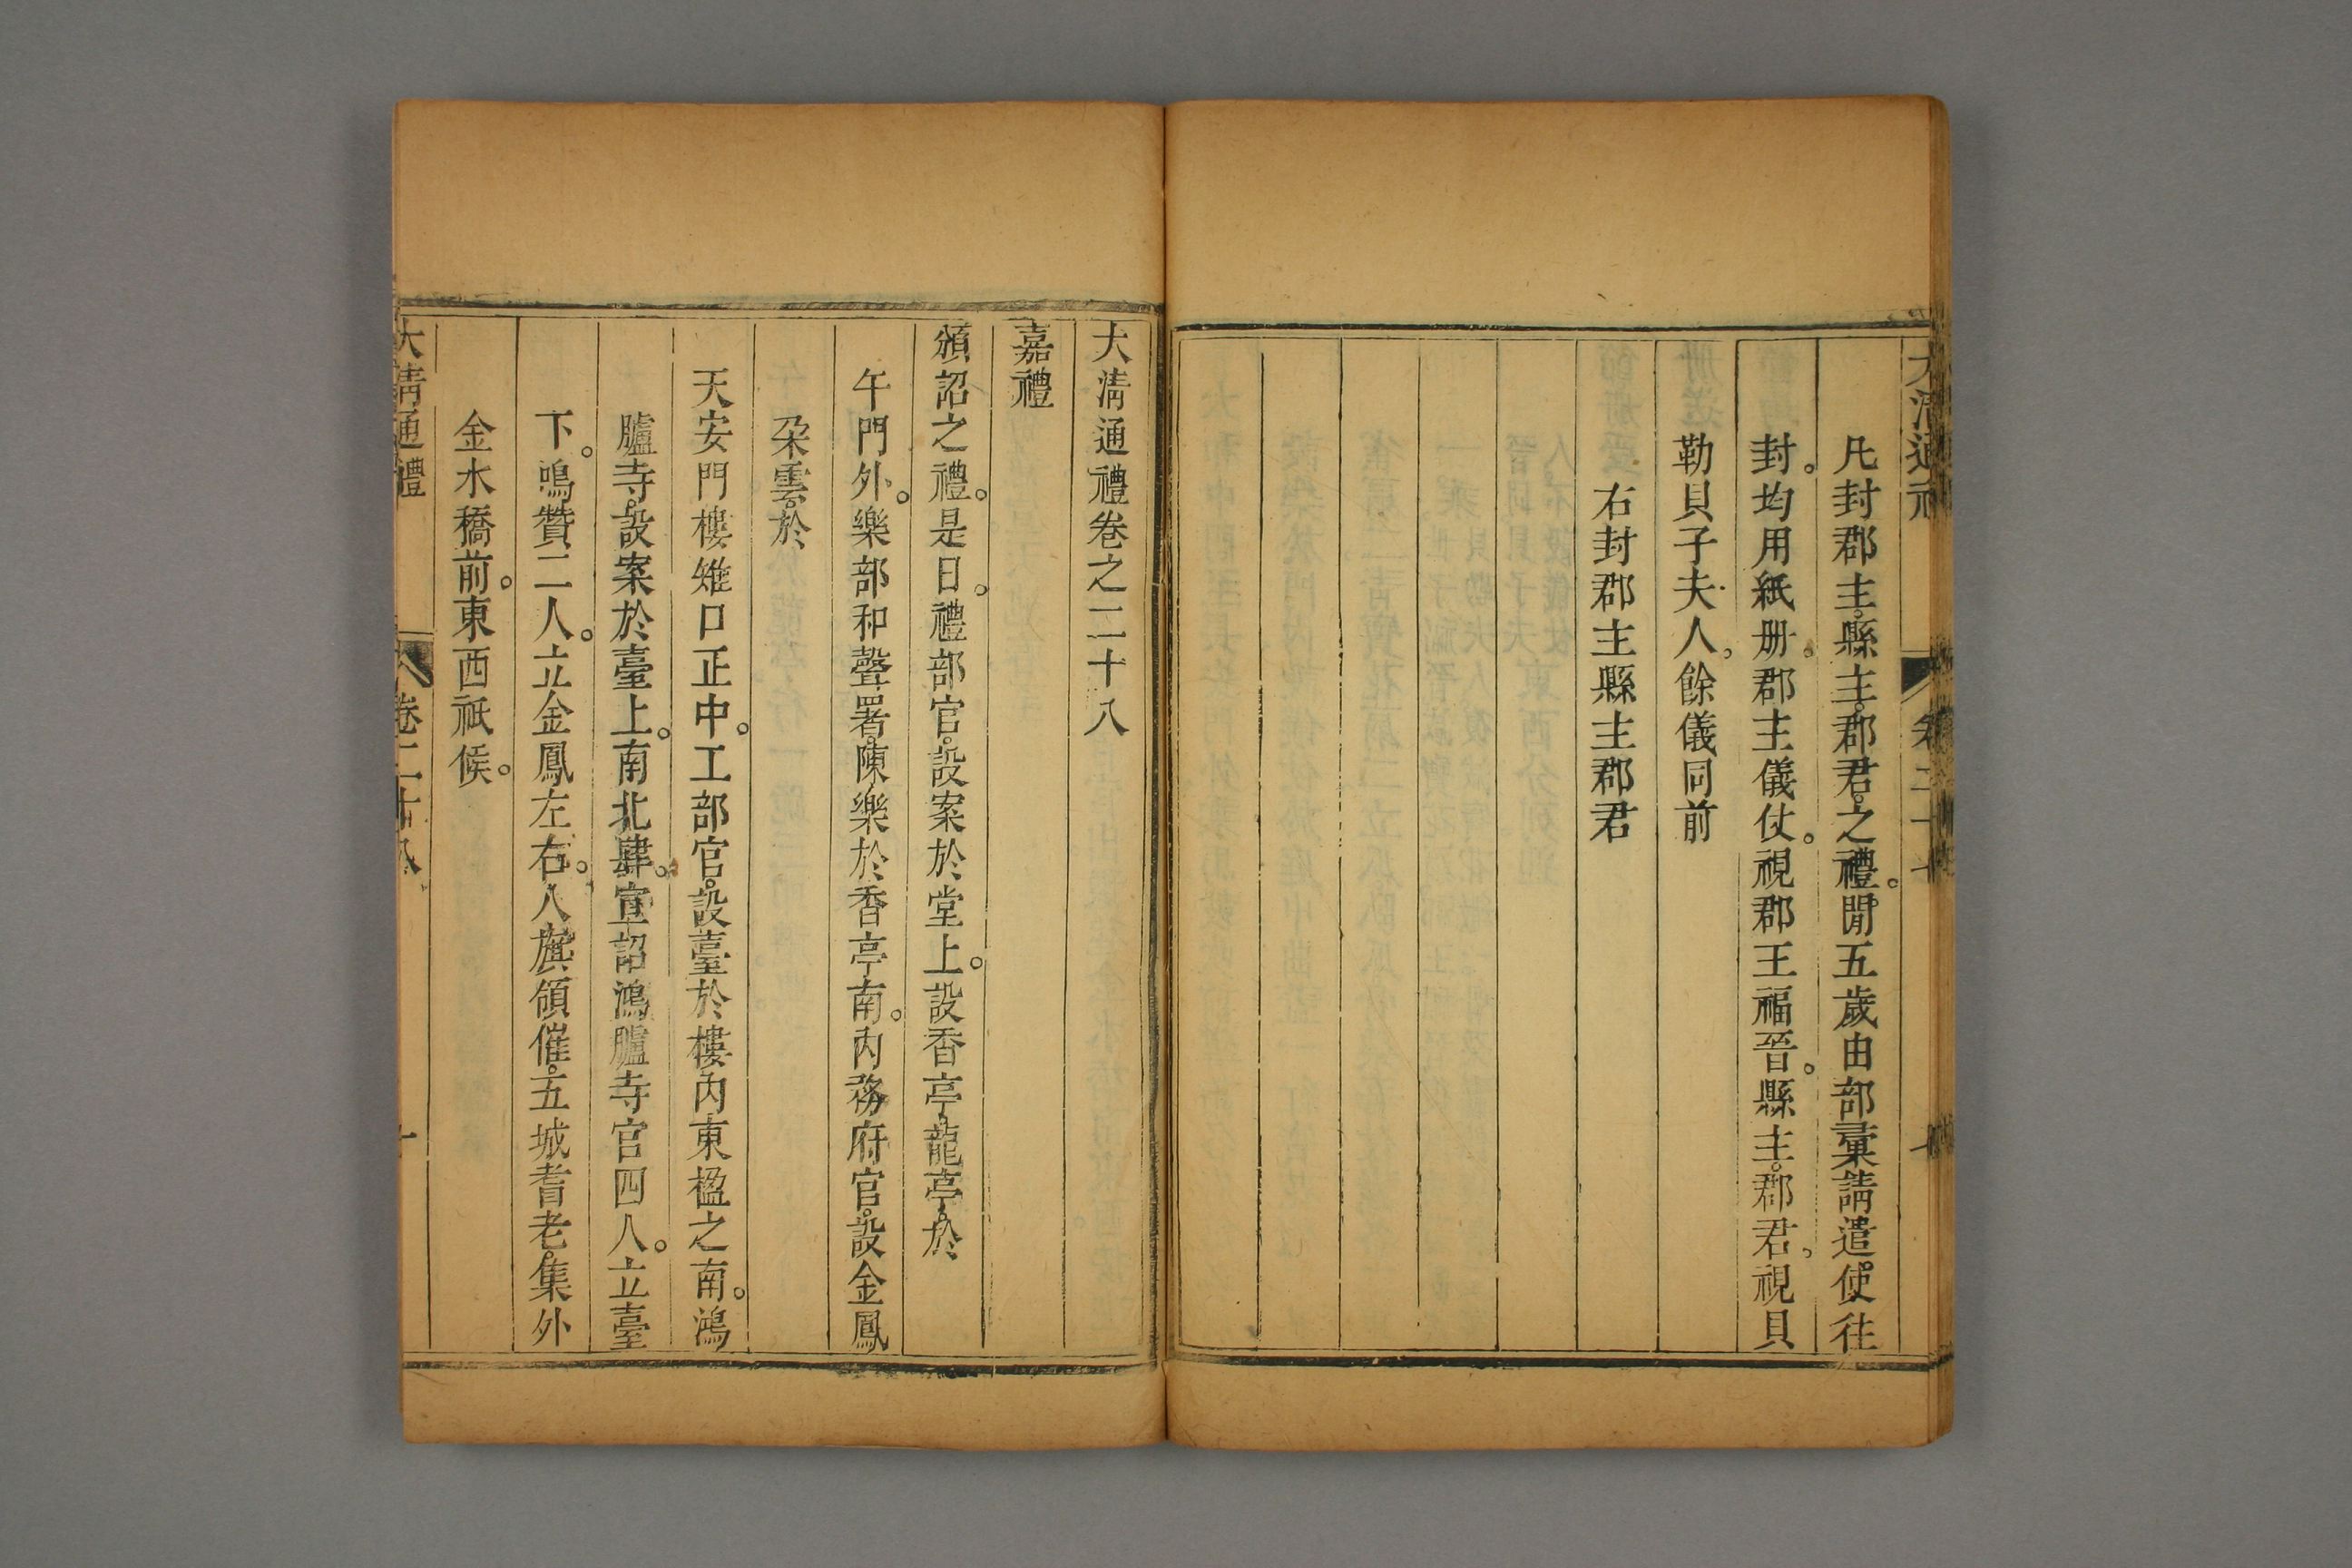 大清通禮
卷二十七
凡封郡主。縣主。郡君。之禮。閒五歲由部彙請遣使往
封。均用紙册。郡主儀仗。視郡王福晉。縣主。郡君。視貝
勒貝子夫人。餘儀同前
右封郡主縣主郡君
大清通禮卷之二十八
嘉禮
頒詔之禮。是日。禮部官。設案於堂上。設香亭。龍亭。於
午門外。樂部和聲署。陳樂於香亭南。內務府官。設金鳳
朶雲。於
天安門樓雉口正中。工部官。設臺於樓內東楹之南。鴻
臚寺。設案於臺上。南北肆。宣詔鴻臚寺官四人。立臺
下。鳴贊二人。立金鳳左右。八旗領催。五城耆老。集外
金水橋前。東西祇候。
大清通禮
卷二十八